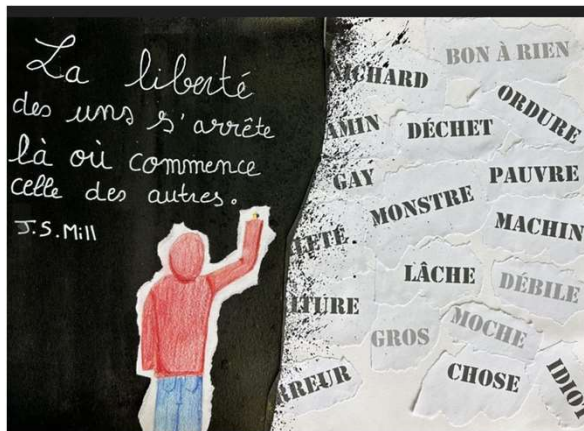 La liberté
des uns s'arrête
là où commence
celle des autres.
J.S.Mill
BON À RIEN
ICHARD
ORDURE
AMIN
DÉCHET
GAY
PAUVRE
MONSTRE
MACHIN
LETÉ.
LÂCHE
DÉBILE
LTURE
MOCHE
GROS
RREUR
CHOSE
IDIOT